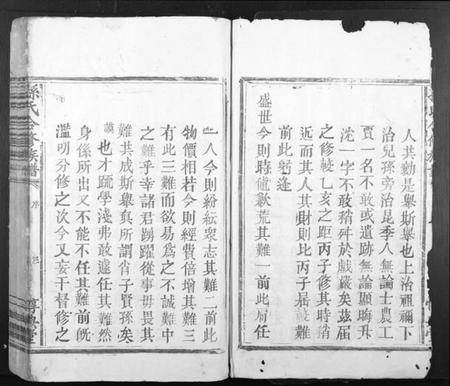 人共勷是舉斯舉也上治祖禰下
治兒孫旁治昆季凡無論士農工
賈一名不敢或遺跡無論顯晦升
沈一字不敢稍舛於戲嚴矣茲屆
之修較乙亥之距丙子修其時稍
近而其人其財則比丙子是較難
前此
盛世今則時荒其難一前此有任
一人今則紛紜衆志其難二前此
物價相若今則經費倍增其難三
有此三難而欲易為之不誠難中
之難乎幸諸君則踴躍從事毋畏其
難共成斯舉眞所謂肖子賢孫矣
也才疏學淺弗敢遽任其難然
身係所出又不能不任其難前旣
濫明分修之次今又妄干督修之
孫氏合修族譜
序
三